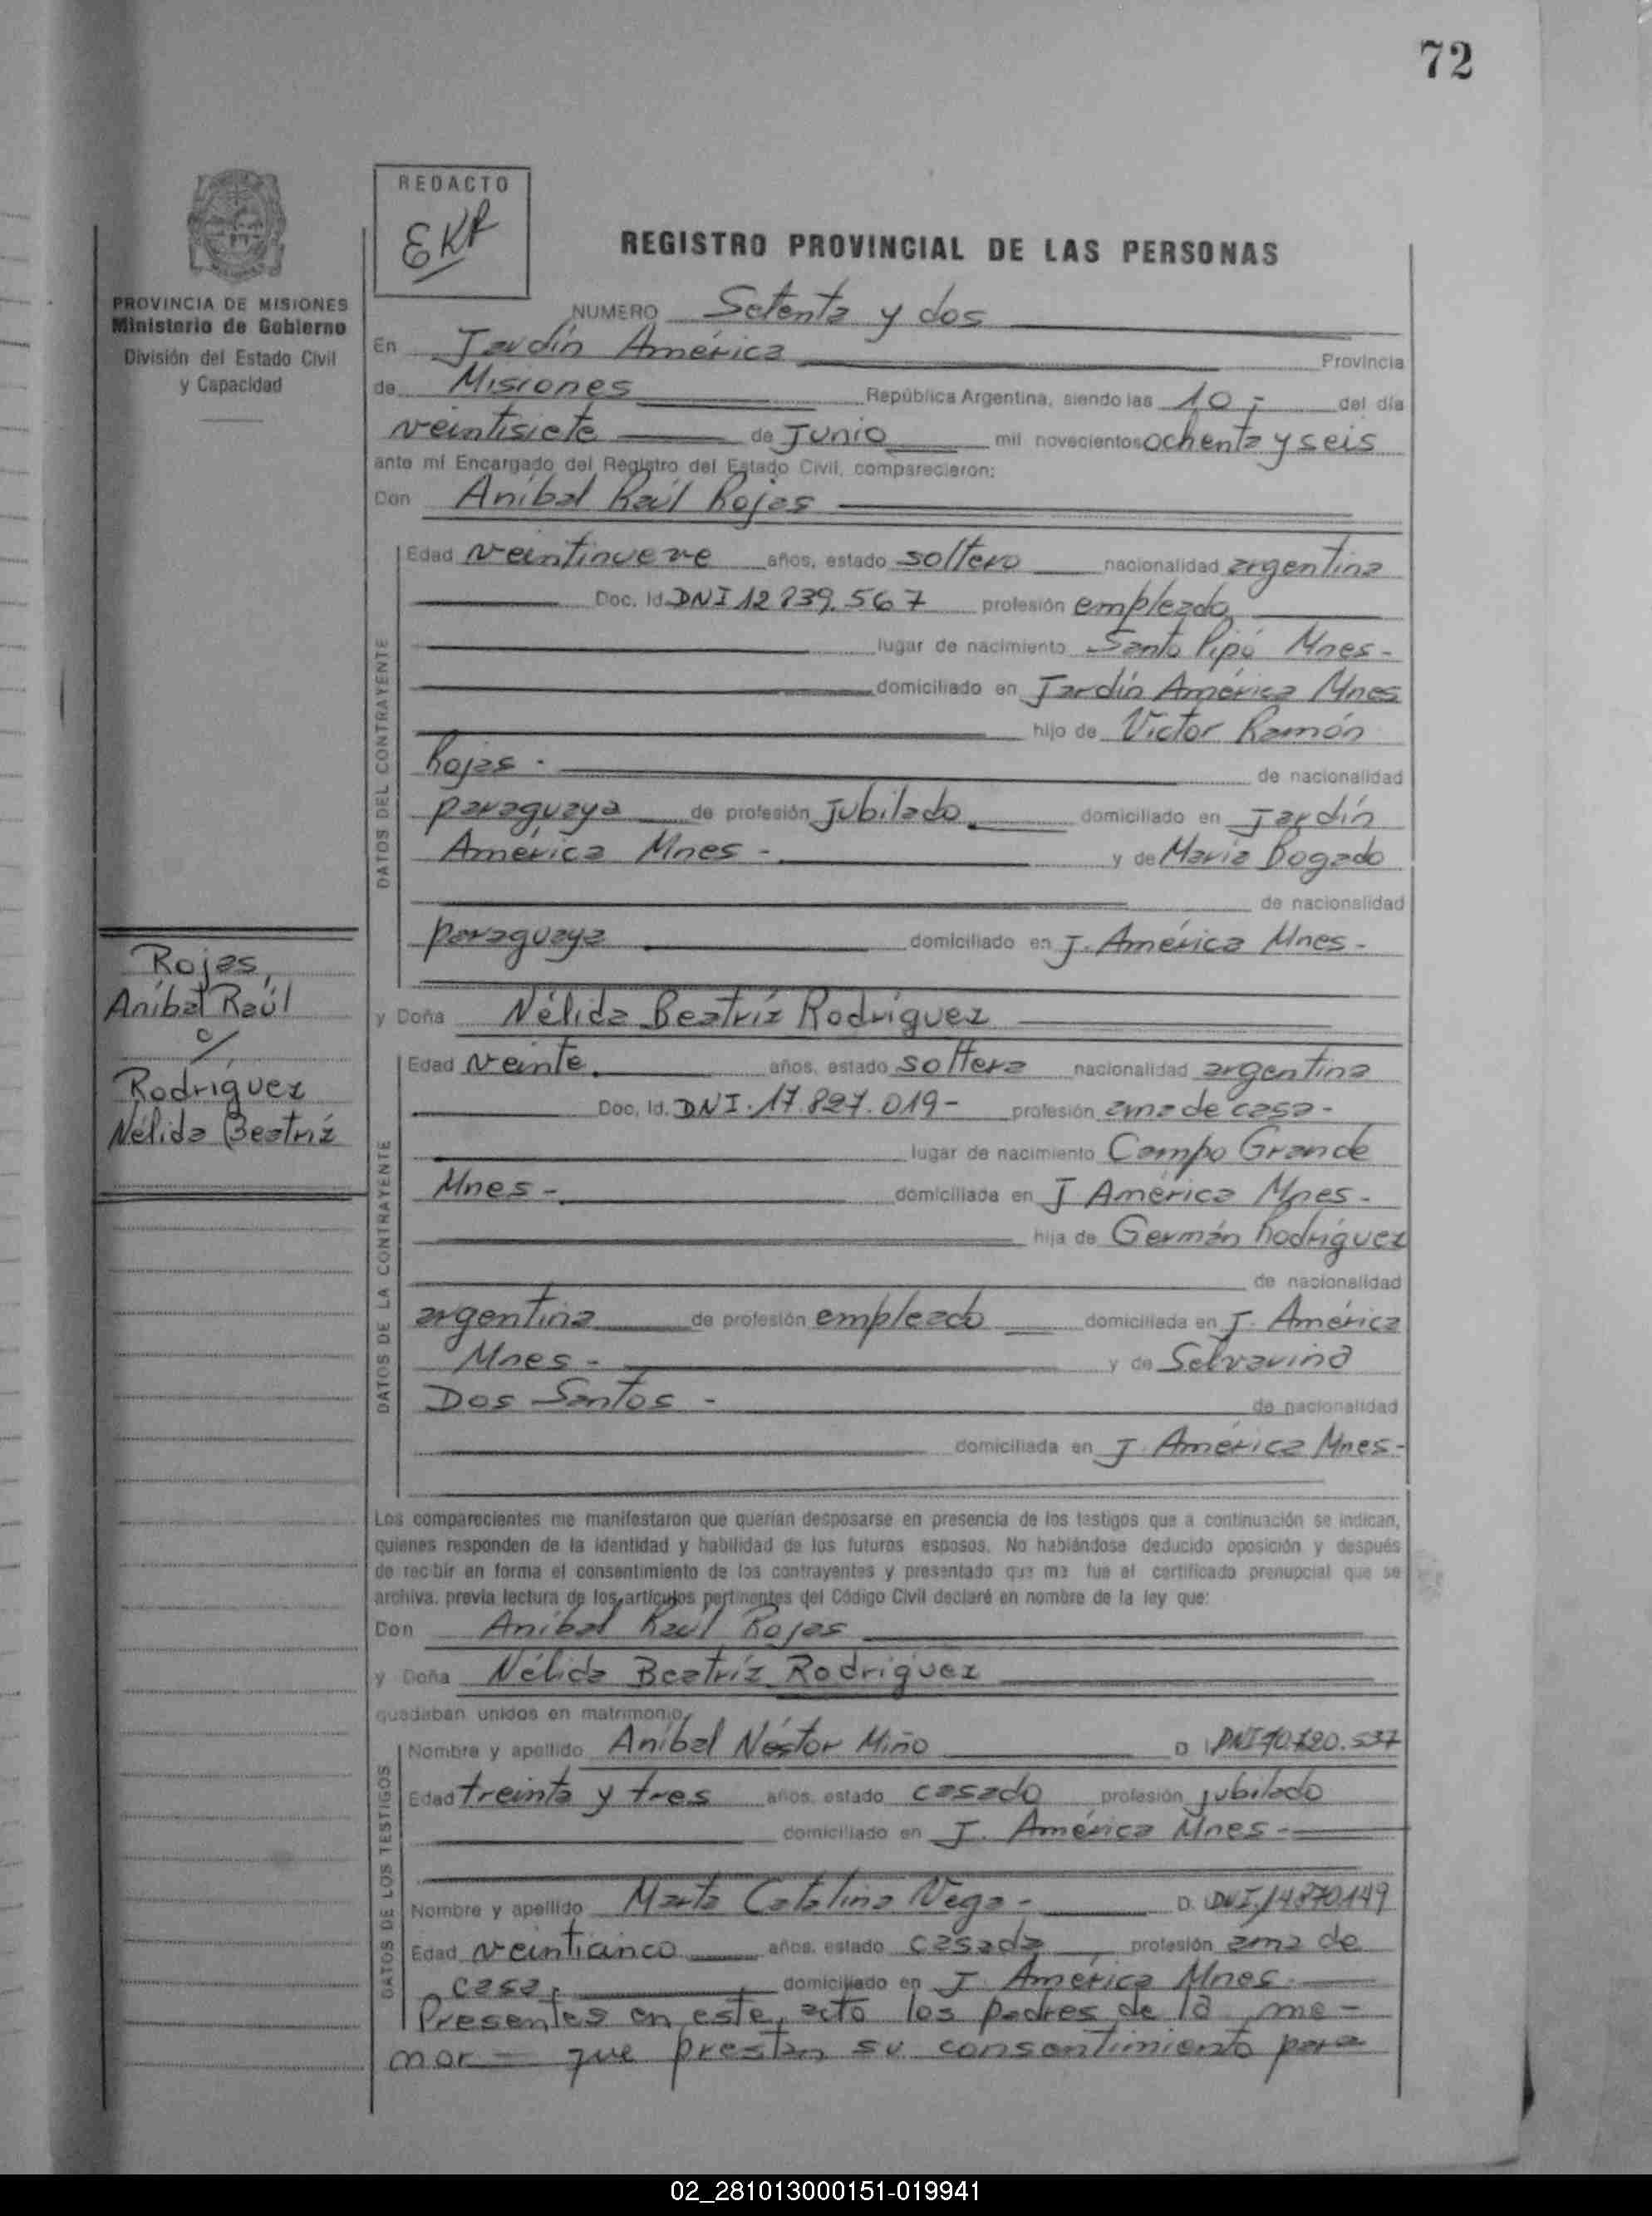 72
REDACTO
EKR
REGISTRO PROVINCIAL DE LAS PERSONAS
PROVINCIA DE MISIONES
Ministerio de Gobierno
División del Estado Civil
y Capacidad
NUMERO Setenta y dos
En Jardín América Provincia
de Misiones República Argentina, siendo las 10 - del día
veintisiete de Junio mil novecientos ochenta y seis
ante mí Encargado del Registro del Estado Civil, comparecieron:
Don Aníbal Raúl Rojas
DATOS DEL CONTRAYENTE
Edad veintinueve años, estado soltero nacionalidad argentina
Doc. Id. DNI 12.839.567 profesión empleado
lugar de nacimiento Santo Pipó Mnes-
domiciliado en Jardín América Mnes
hijo de Víctor Ramón
Rojas - de nacionalidad
paraguaya de profesión jubilado domiciliado en Jardín
América Mnes - y de María Bogado
de nacionalidad
paraguaya domiciliado en J. América Mnes-
Rojas,
Aníbal Raúl
c/
Rodríguez
Nélida Beatríz
y Doña Nélida Beatríz Rodríguez
DATOS DE LA CONTRAYENTE
Edad veinte años, estado soltera nacionalidad argentina
Doc. Id. DNI. 17.827.019- profesión ama de casa -
lugar de nacimiento Campo Grande
Mnes - domiciliada en J América Mnes-
hija de Germán Rodríguez
de nacionalidad
argentina de profesión empleado domiciliada en J. América
Mnes - y de Selvarina
Dos Santos - de nacionalidad
domiciliada en J. América Mnes-
Los comparecientes me manifestaron que querían desposarse en presencia de los testigos que a continuación se indican,
quienes responden de la identidad y habilidad de los futuros esposos. No habiéndose deducido oposición y después
de recibir en forma el consentimiento de los contrayentes y presentado que me fue el certificado prenupcial que se
archiva, previa lectura de los artículos pertinentes del Código Civil declaré en nombre de la ley que:
Don Aníbal Raúl Rojas
y Doña Nélida Beatríz Rodríguez
quedaban unidos en matrimonio.
DATOS DE LOS TESTIGOS
Nombre y apellido Aníbal Néstor Miño D. DNI 10.120.537
Edad treinta y tres años, estado casado profesión jubilado
domiciliado en J. América Mnes-
Nombre y apellido Marta Catalina Vega - D. DNI.14.870.149
Edad veinticinco años, estado casada profesión ama de
casa, domiciliado en J. América Mnes.
Presentes en este acto los padres de la me-
nor - que prestan su consentimiento para
02_281013000151-019941